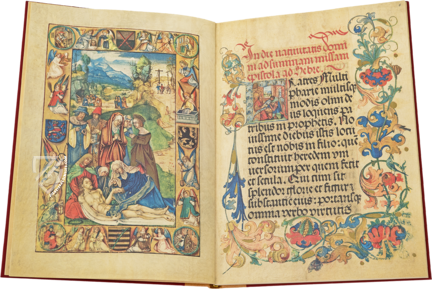 In die nativitatis domi
ni ad summam missam
epistola ad Hebre
Fratres Multi
pharie multisq
modis olim de
us loquens pa
tribus in prophetis. No
vissime diebus istis locu
tus est nobis in filio: quē
constituit heredem vni
versorum per quem fecit
et secula. Qui cum sit
splendor glorie et figura
substantie eius: portansq
omnia verbo virtutis